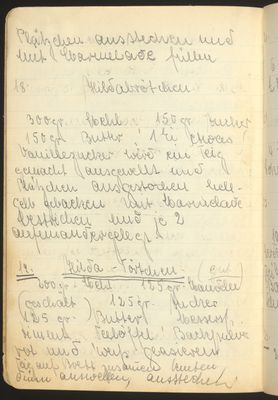 Plätzchen ausstechen und
mit Marmelade füllen
18. Hildabrötchen.
300 gr. Mehl 150 gr. Zucker
150 gr. Butter 1 Ei etwas
Vanillezucker wird ein Teig
gemacht ausgewellt und
Plätzchen ausgestochen hell-
gelb gebacken mit Marmelade
bestrichen und je 2
aufeinandergelegt.
19. Hilda-Törtchen. (gut)
200 gr. Mehl 125 gr. Mandeln
(geschält) 125 gr. Zucker
125 gr. Butter
Backpulver
rot und weiß glasieren
auf Brett zusammen kneten
dünn auswellen, ausstechen